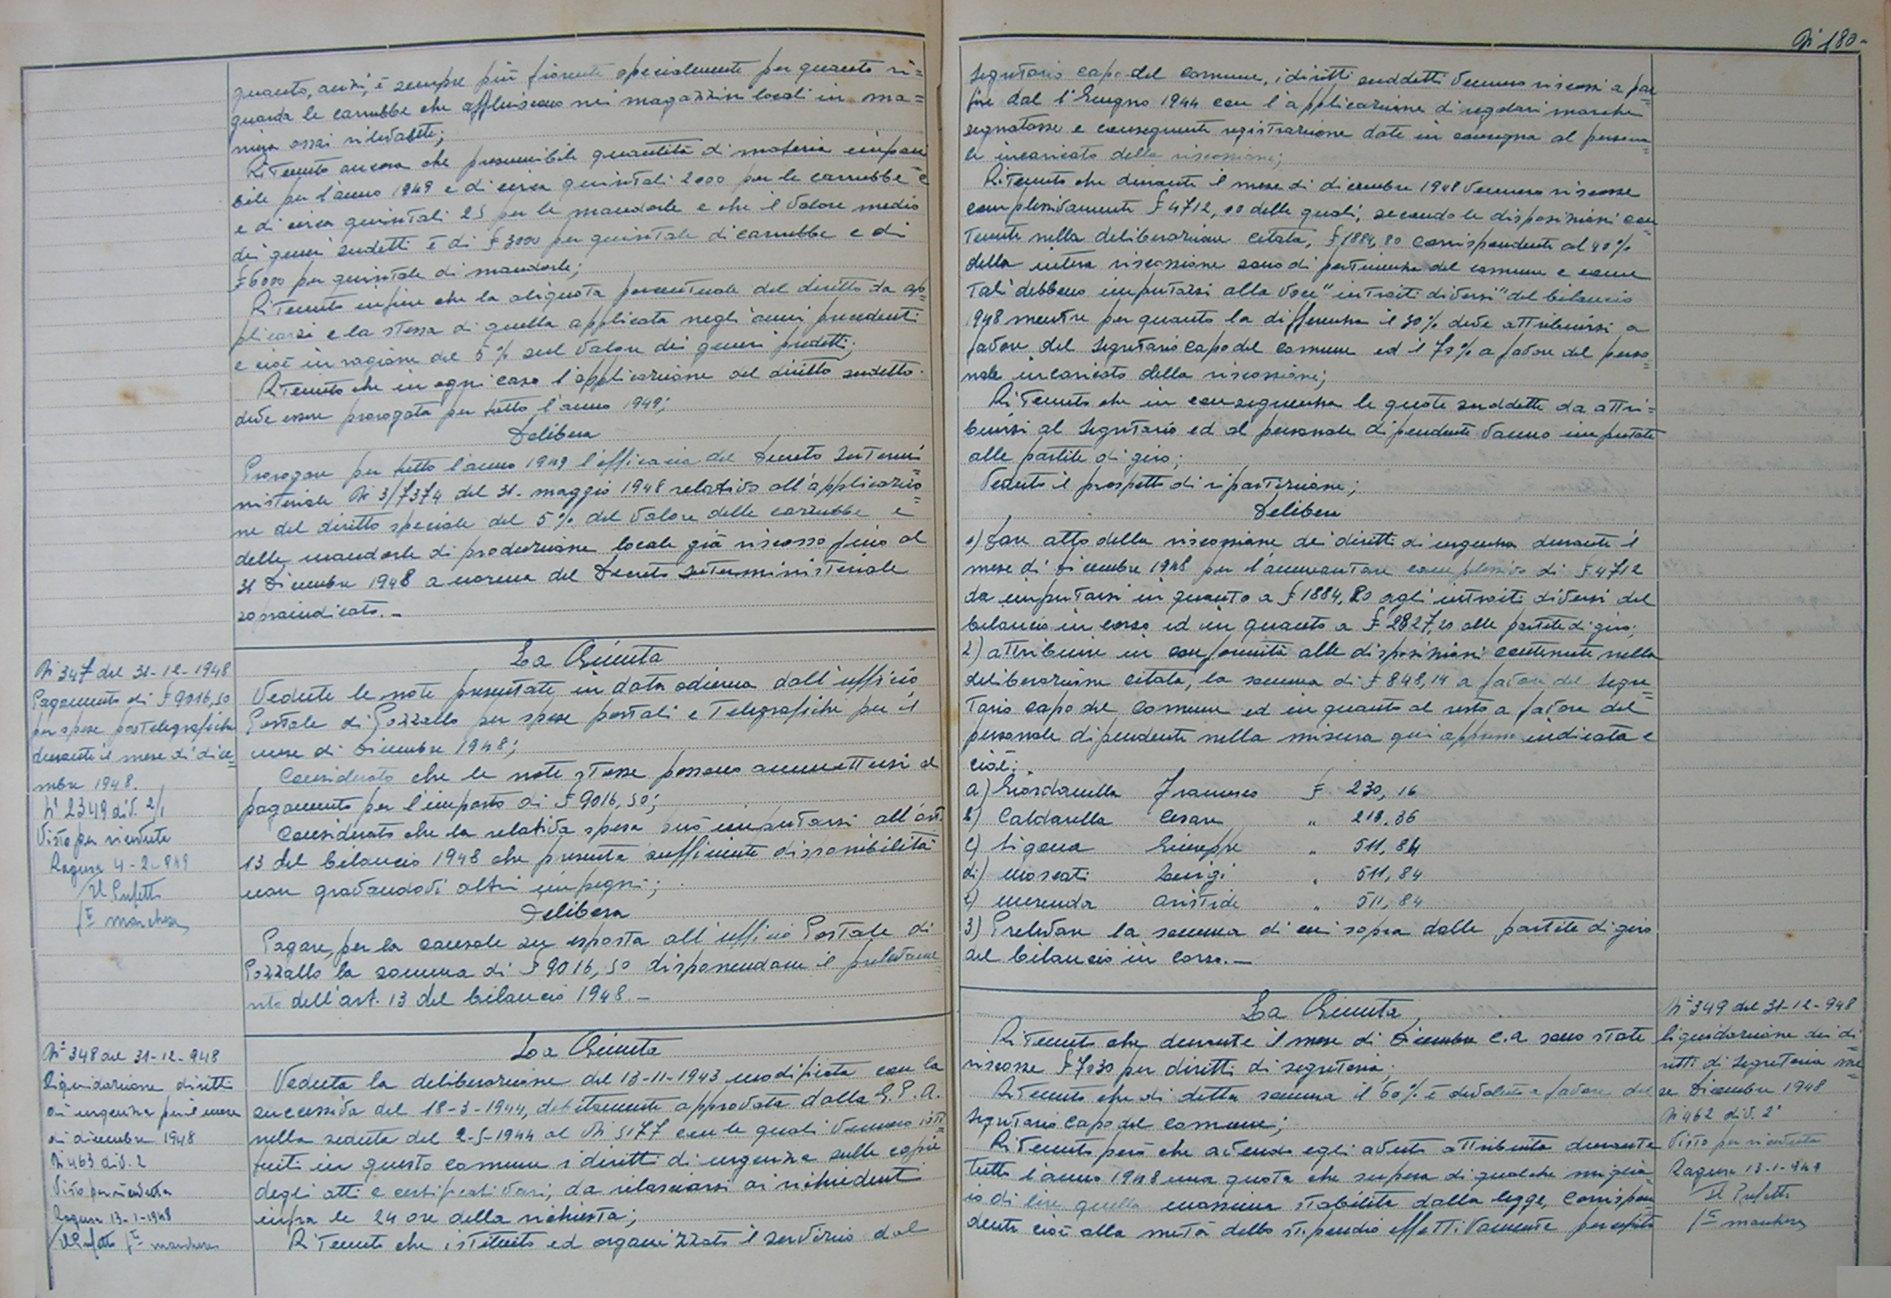 quanto, anzi, è sempre più fiorente specialmente per quanto ri=
guarda le carrubbe che affluiscono nei magazzini locali in ma=
niera assai rilevante;
Ritenuto ancora che presumibile quantità di materia imponi
bile per l'anno 1949 e di circa quintali 2000 per le carrubbe
e di circa quintali 25 per le mandorle e che il valore medio
dei generi sudetti è di £ 3000 per quintale di carrubbe e di
£ 6000 per quintale di mandorle;
Ritenuto infine che la aliquota percentuale del diritto da ap=
plicarsi e la stessa di quella applicata negli anni precedenti
e cioè in ragione del 5% sul valore dei generi predetti;
Ritenuto che in ogni caso l'applicazione del diritto sudetto
deve essere prorogata per tutto l'anno 1949;
Delibera
Prorogare per tutto l'anno 1949 l'efficacia del Decreto Intermi
nisteriale N° 3/7374 del 31. maggio 1948 relativo all'applicazio=
ne del diritto speciale del 5% del valore delle carrubbe e
delle mandorle di produzione locale già riscosso fino al
31 Dicembre 1948 a norma del Decreto Interministeriale
sopraindicato. -
N° 347 del 31-12-1948
Pagamento di £ 9016,50
per spese postelegrafiche
durante il mese di dice=
mbre 1948.
N° 2349 div. 2/1
Visto per ricevuta
Ragusa 4-2-949
Il Prefetto
La Giunta
Vedute le note presentate in data odierna dall'ufficio
Postale di Pozzallo per spese postali e Telegrafiche per il
mese di Dicembre 1948;
Considerato che le note stesse possono ammettersi al
pagamento per l'importo di £ 9016,50;
Considerato che la relativa spesa può imputarsi all'art.
13 del bilancio 1948 che presenta sufficiente disponibilità
non gravandovi altri impegni;
Delibera
Pagare, per la causale su esposta all'ufficio Postale di
Pozzallo la somma di £ 9016,50 disponendone il prelevame
nto dell'art. 13 del bilancio 1948. -
N° 348 del 31-12-948
Liquidazione diritti
di urgenza per il mese
di dicembre 1948
N° 463 div. 2
Visto per ricevuta
Ragusa 13-1-1948
Il Prefetto
La Giunta
Veduta la deliberazione del 13-11-1943 modificata con la
successiva del 18-3-1944, debitamente approvata dalla G.P.A.
nella seduta del 2-5-1944 al N° 5177 con le quali vennero isti=
tuiti in questo comune i diritti di urgenza sulle copie
degli atti e certificati vari, da rilasciarsi ai richiedenti
infra le 24 ore della richiesta;
Ritenuto che istituito ed organizzato il servizio dal
N° 180-
Segretario capo del comune, i diritti suddetti vennero riscossi a par
tire dal 1° Giugno 1944 con l'applicazione di regolari marche
segnatasse e conseguente registrazione date in consegna al persona=
le incaricato della riscossione;
Ritenuto che durante il mese di dicembre 1948 vennero riscosse
complessivamente £ 4712,00 delle quali, secondo le disposizioni con
tenute nella deliberazione citata, £ 1884,80 corrispondenti al 40%
della intera riscossione sono di pertinenza del comune e come
tali debbono imputarsi alla voce "introiti diversi" del bilancio
1948 mentre per quanto la differenza il 30% deve attribuirsi a
favore del segretario capo del comune ed il 70% a favore del perso=
nale incaricato della riscossione;
Ritenuto che in conseguenza le quote suddette da attri=
buirsi al segretario ed al personale dipendente vanno imputate
alle partite di giro;
Veduto il prospetto di ripartizione;
Delibera
1) Dare atto della riscossione dei diritti di urgenza durante il
mese di dicembre 1948 per l'ammontare complessivo di £ 4712
da imputarsi in quanto a £ 1884,80 agli introiti diversi del
bilancio in corso ed in quanto a £ 2827,20 alle partite di giro;
2) attribuire in conformità alle disposizioni contenute nella
deliberazione citata, la somma di £ 848,14 a favore del segre=
tario capo del comune ed in quanto al resto a favore del
personale dipendente nella misura qui appresso indicata e
cioè:
a) Giordanella Francesco £ 230,16
b) Caldarella Cesare " 213,36
c) Ligona Giuseppe " 511,84
d) Moscati Luigi " 511,84
e) Merenda Aristide " 511,84
3) Prelevare la somma di cui sopra dalle partite di giro
del bilancio in corso. -
La Giunta
Ritenuto che durante il mese di Dicembre c.a sono state
riscosse £ 7030 per diritti di segreteria;
Ritenuto che di detta somma il 60% è devoluto a favore del
Segretario Capo del comune;
Ritenuto però che avendo egli avuto attribuita durante
tutto l'anno 1948 una quota che supera di qualche miglia
io di lire quella massima stabilita dalla legge, corrispon
dente cioè alla metà dello stipendio effettivamente percepito
N° 349 del 31-12-948
liquidazione dei di=
ritti di segreteria me=
se Dicembre 1948
N° 462 div. 2°
Visto per ricevuta
Ragusa 13-1-949
Il Prefetto